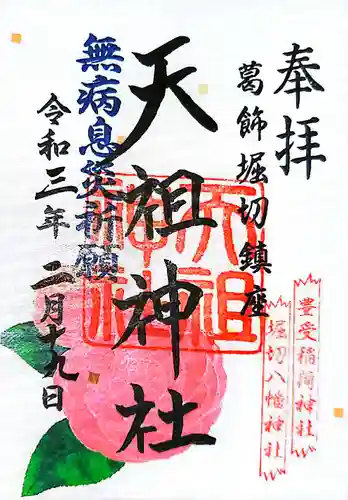 奉拝
葛飾堀切鎮座
豊受稲荷神社
堀切八幡神社
天祖神社
天祖神社
無病息災祈願
令和三年二月十九日